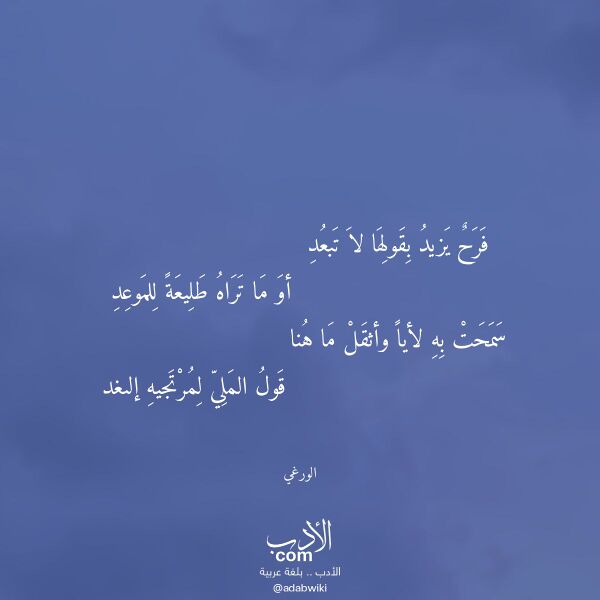 فَرَحٌ يَزيدُ بِقَولِهَا لاَ تَبعُدِ
أوَ مَا تَرَاهُ طَلِيعَةً لِلمَوعِدِ
سَمَحَتْ بِهِ لأياً وأثقَلْ مَا هُنا
قَولُ المَلِيّ لِمُرْتَجيهِ إلىغد
الورغي
الأدب
com
الأدب .. بلغة عربية
@adabwiki